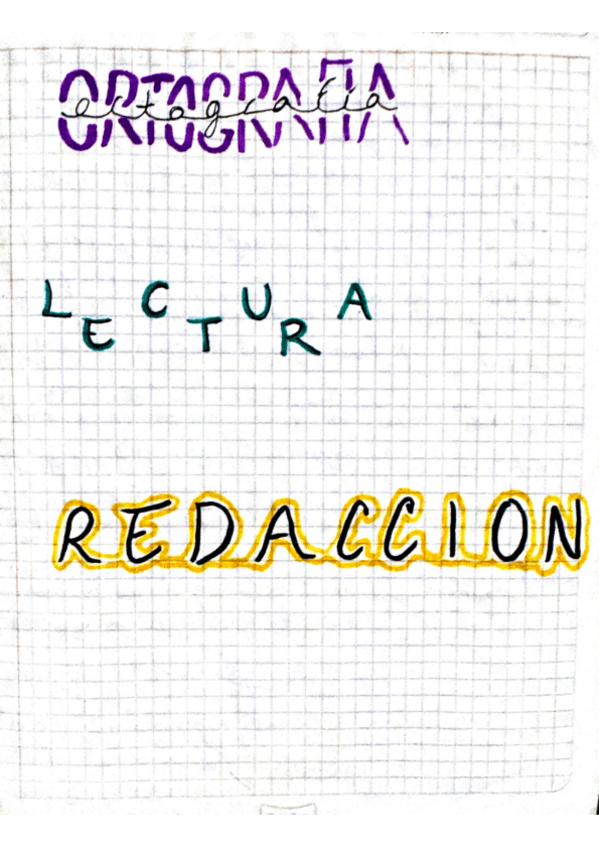 ORTOGRAFIA
ortografia
LECTURA
REDACCION